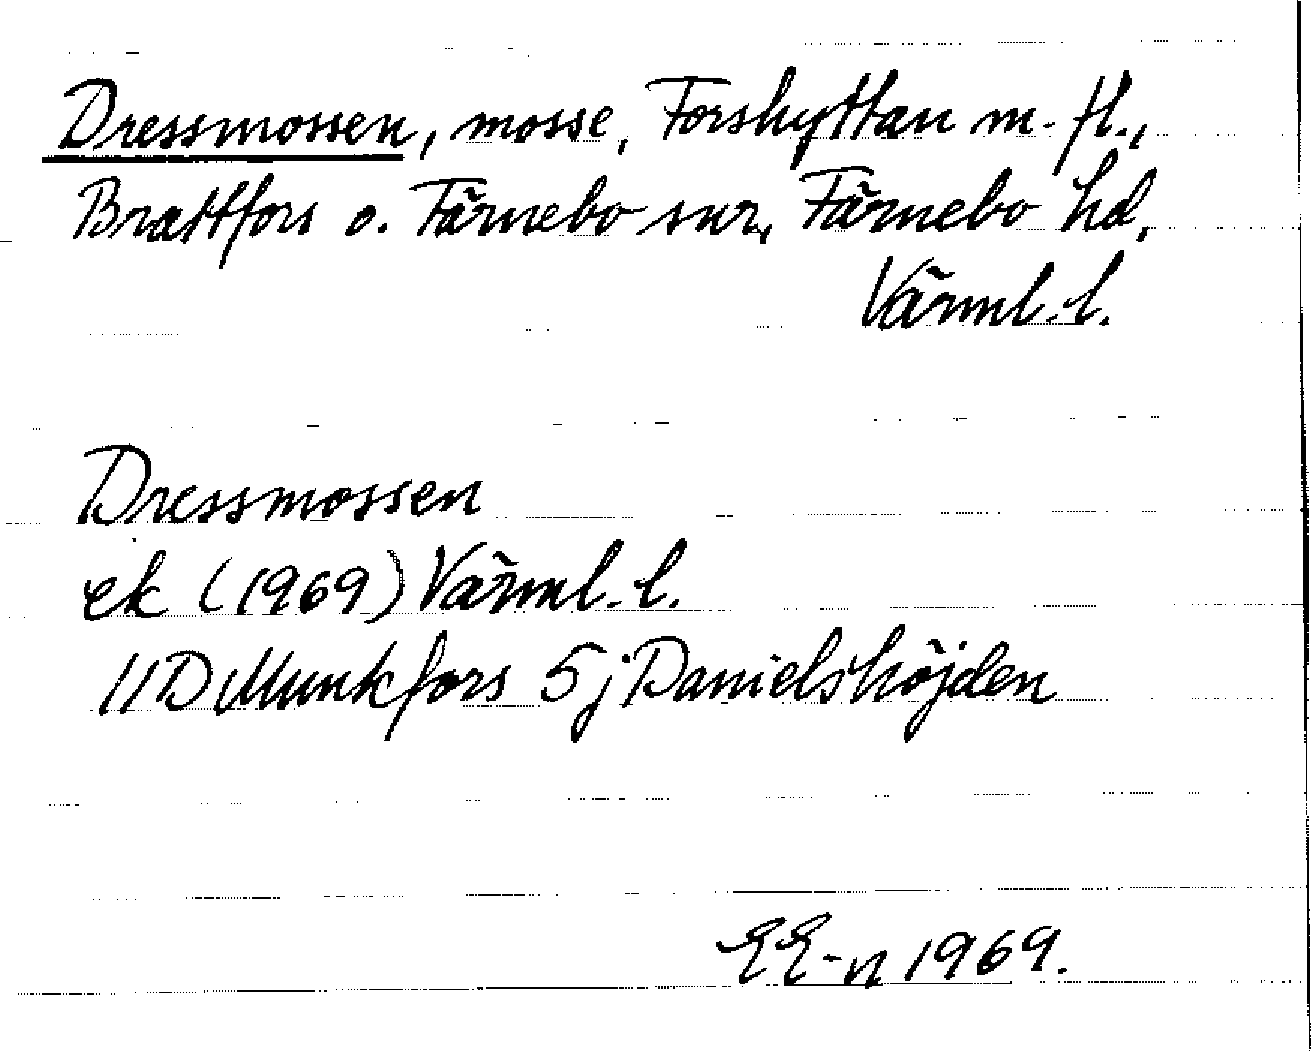 Dressmossen, mosse, Forshyttan m. fl.,
Brattfors o. Färnebo snr, Färnebo hd,
Värml. l.
Dressmossen
ek (1969) Värml. l.
11D Munkfors 5j Danielshöjden
EE-n 1969.